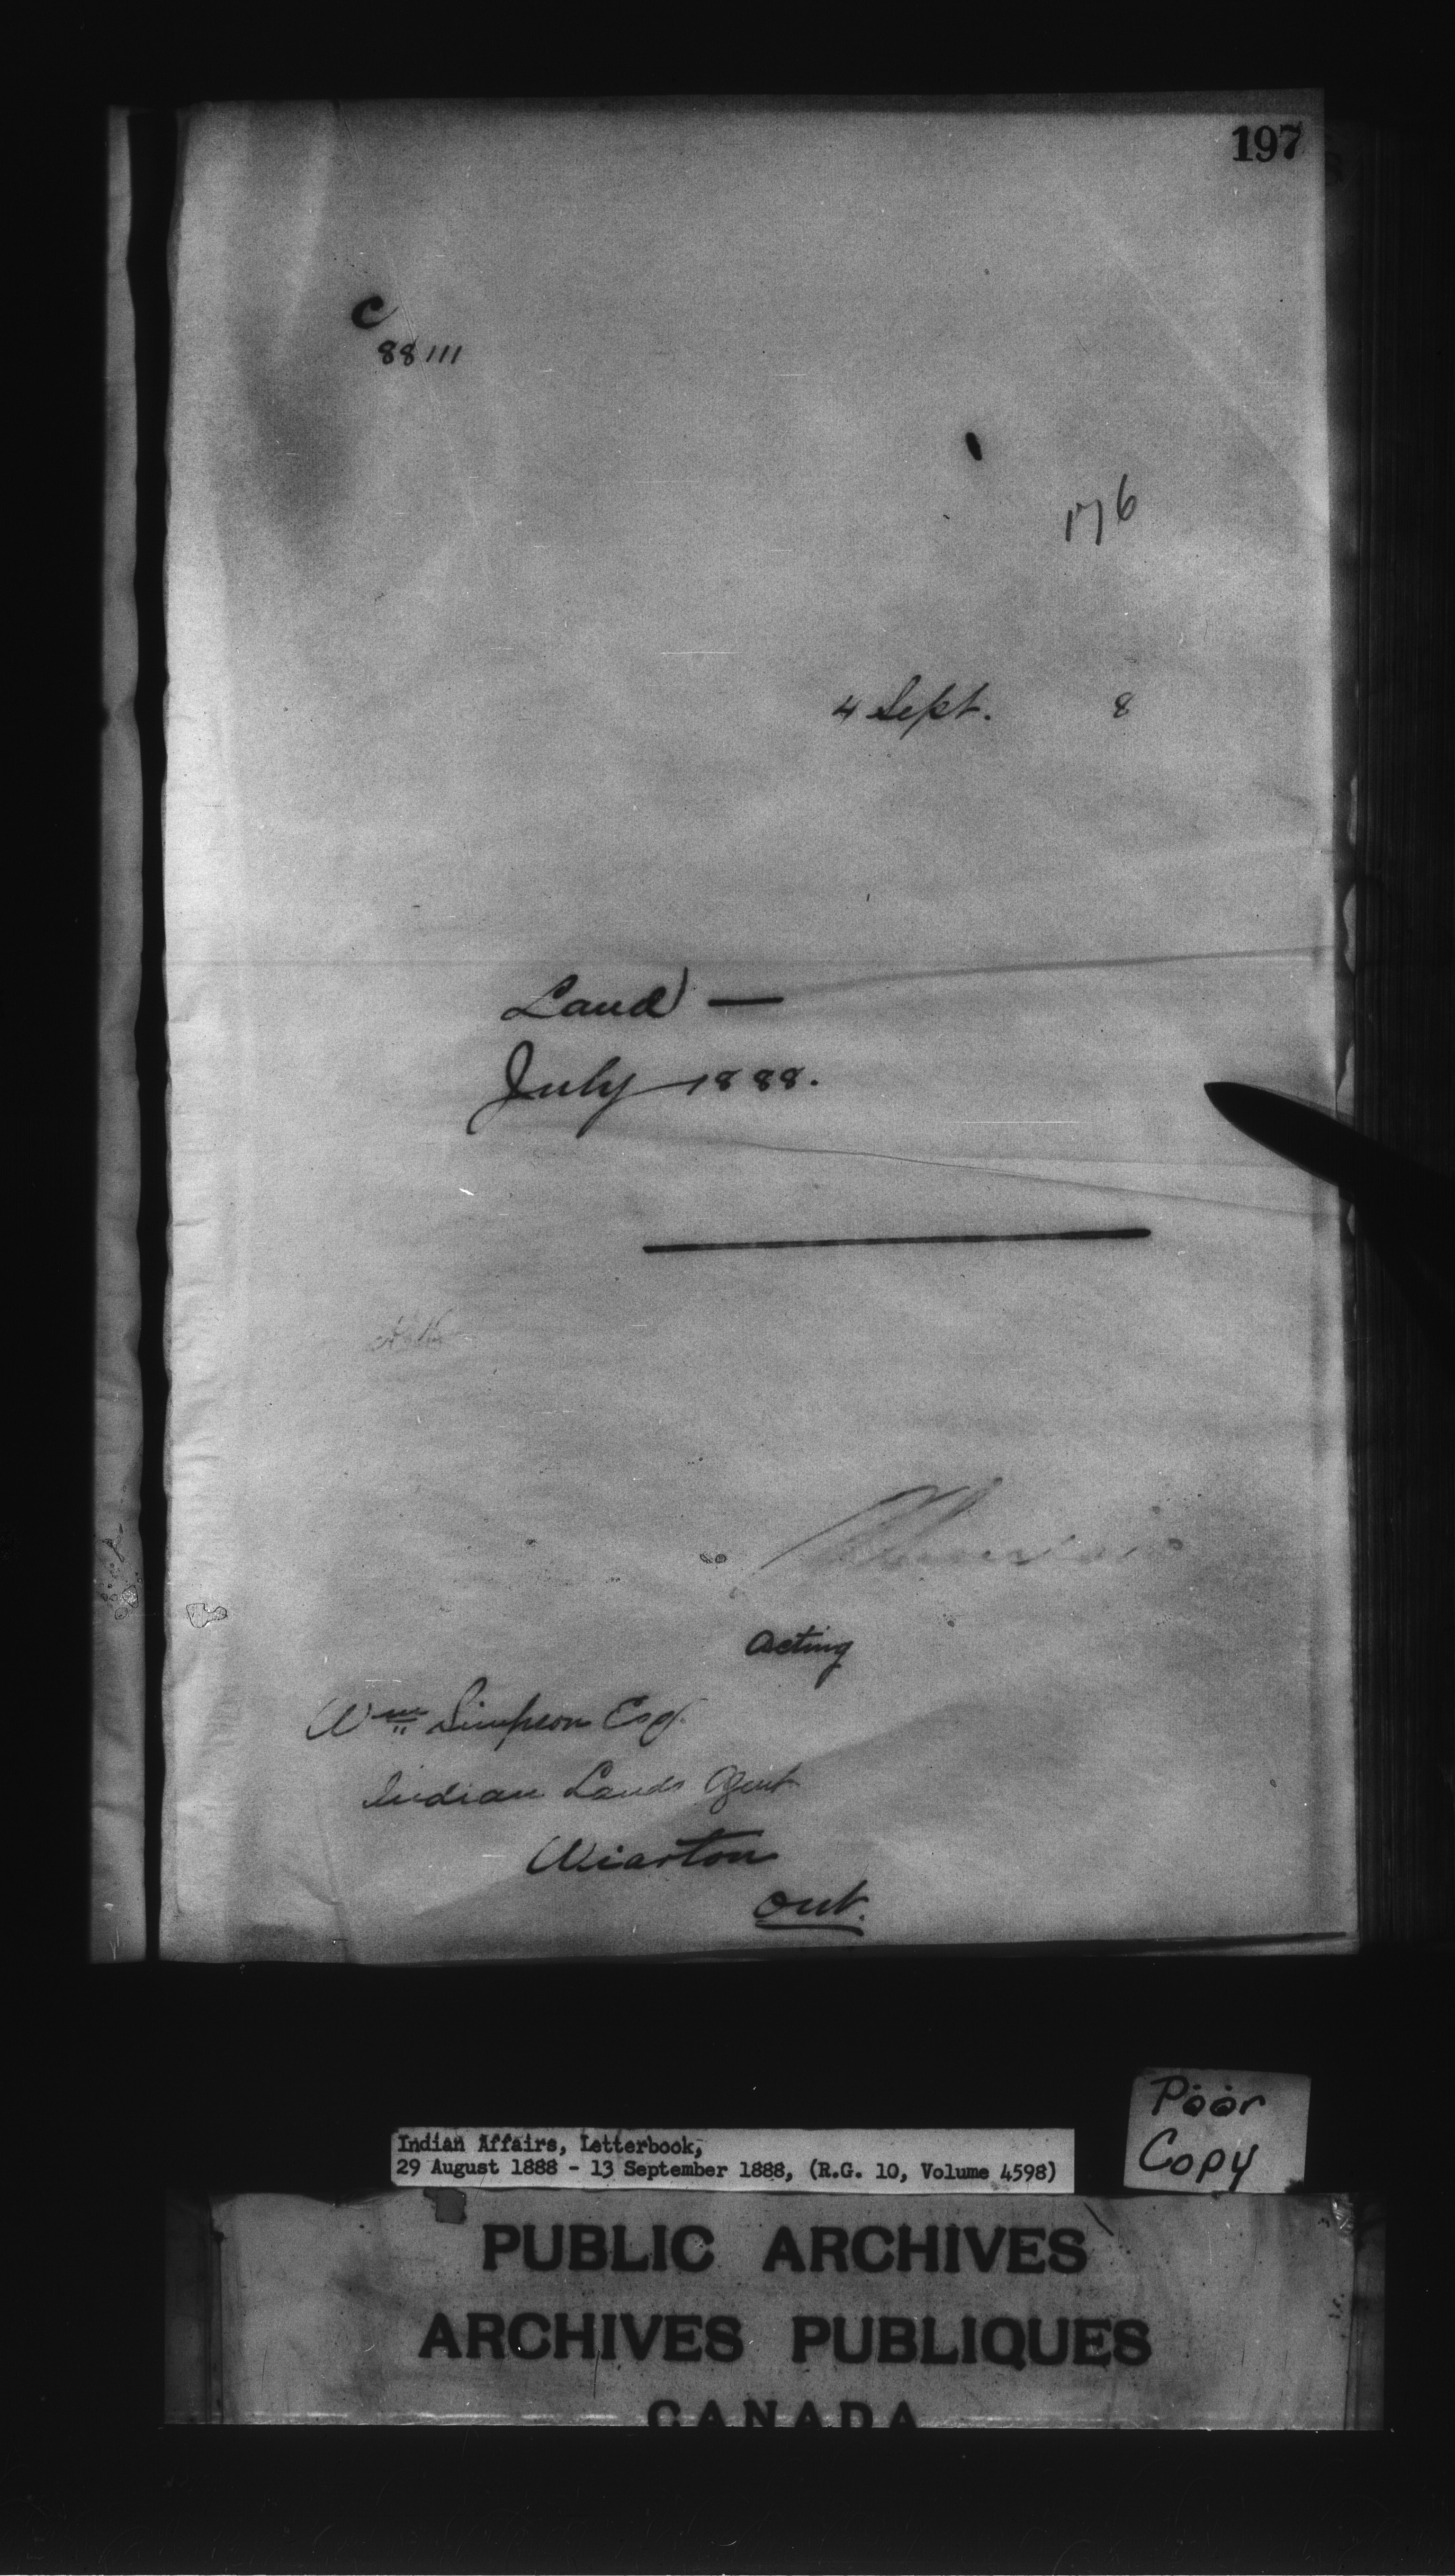 197
C
88111
176
4 Sept. 8
Land —
July 1888.
Acting
Wm Simpson Esq.
Indian Lands Agent
Wiarton
Ont.
Poor
Copy
Indian Affairs, Letterbook,
29 August 1888 - 13 September 1888, (R.G. 10, Volume 4598)
PUBLIC ARCHIVES
ARCHIVES PUBLIQUES
CANADA